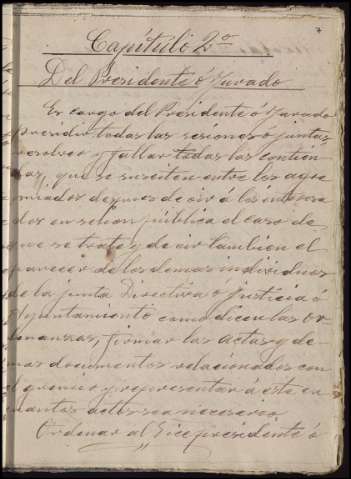 Capítulo 2º
Del Presidente ó Jurado
Es cargo del Presidente ó Jurado
presidir todas las sesiones ó juntas
resolver y fallar todas las contien
das, que se susciten entre los agre
miados despues de oir á los interesa
dos en sesion pública el caso de
que se trate y de oir tambien el
parecer de los demas individuos
de la junta Directiva ó Justicia ó
Ayuntamiento como dicen las Or
denanzas, firmar las actas y de
mas documentos relacionados con
el gremio y representar á este en
cuantos actos sea necesario
Ordenar al Vicepresidente ó